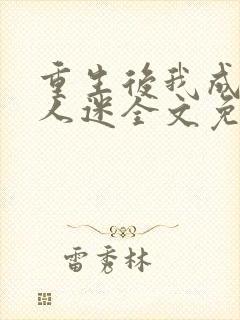 重生後我成
人迷全文免
雷秀林